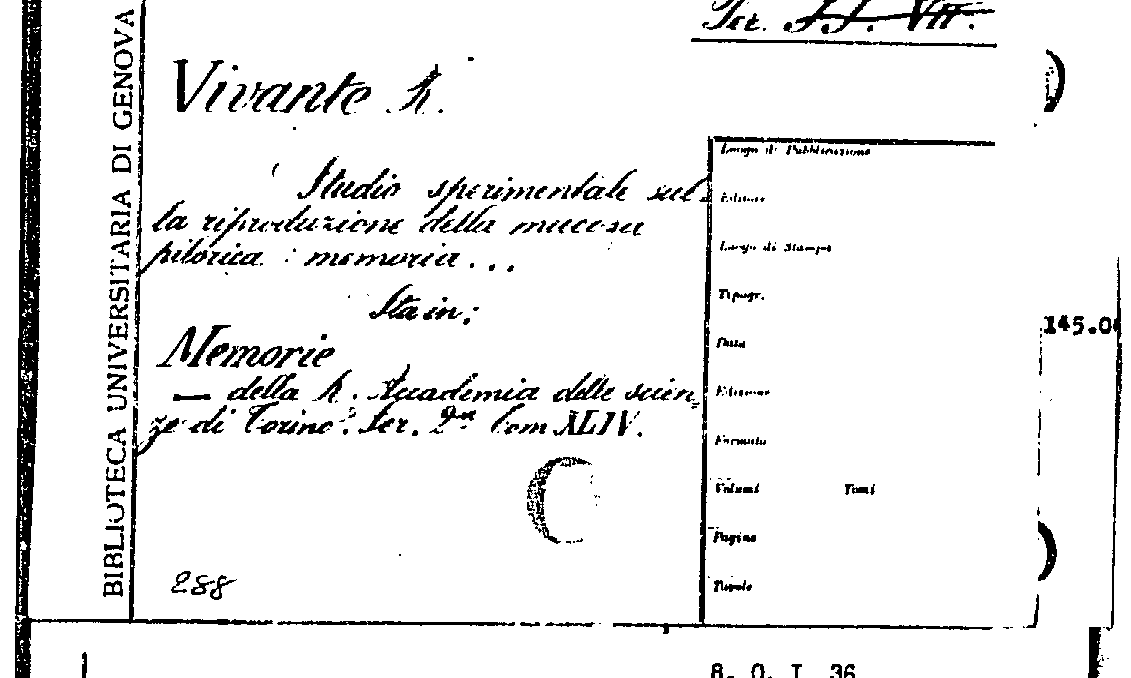 Ser.
BIBLIOTECA UNIVERSITARIA DI GENOVA
Vivante R.
Studio sperimentale sul-
la riproduzione della mucosa
pilorica : memoria...
Sta in:
Memorie
— della R. Accademia delle scien-
ze di Torino. Ser. 2ª Tom XLIV.
288
Luogo di Pubblicazione
Editore
Luogo di Stampa
Tipogr.
Data
Edizione
Formato
Volumi Tomi
Pagine
Tavole
145.0
B. O. I 36